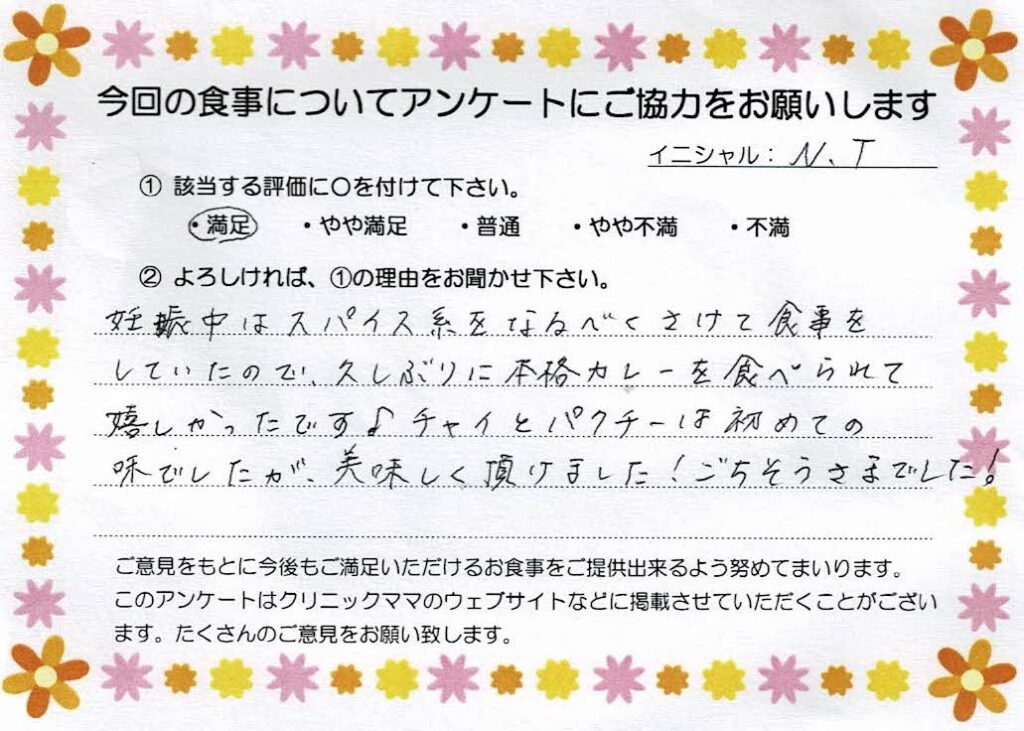 今回の食事についてアンケートにご協力をお願いします
イニシャル： N.T
① 該当する評価に〇を付けて下さい。
・満足 ・やや満足 ・普通 ・やや不満 ・不満
② よろしければ、①の理由をお聞かせ下さい。
妊娠中はスパイス系をなるべくさけて食事を
していたので、久しぶりに本格カレーを食べられて
嬉しかったです♪チャイとパクチーは初めての
味でしたが、美味しく頂けました！ごちそうさまでした！
ご意見をもとに今後もご満足いただけるお食事をご提供出来るよう努めてまいります。
このアンケートはクリニックママのウェブサイトなどに掲載させていただくことがござい
ます。たくさんのご意見をお願い致します。